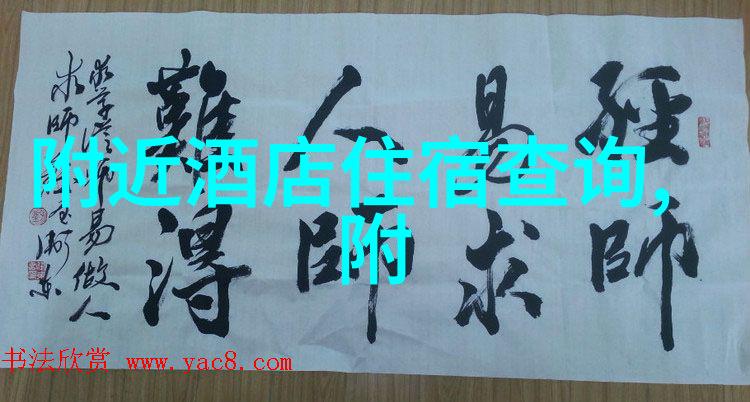 經師
易求
人師
難得
易做人
求師
附近酒店住宿查询,
附
书法欣赏 www.yac8.com